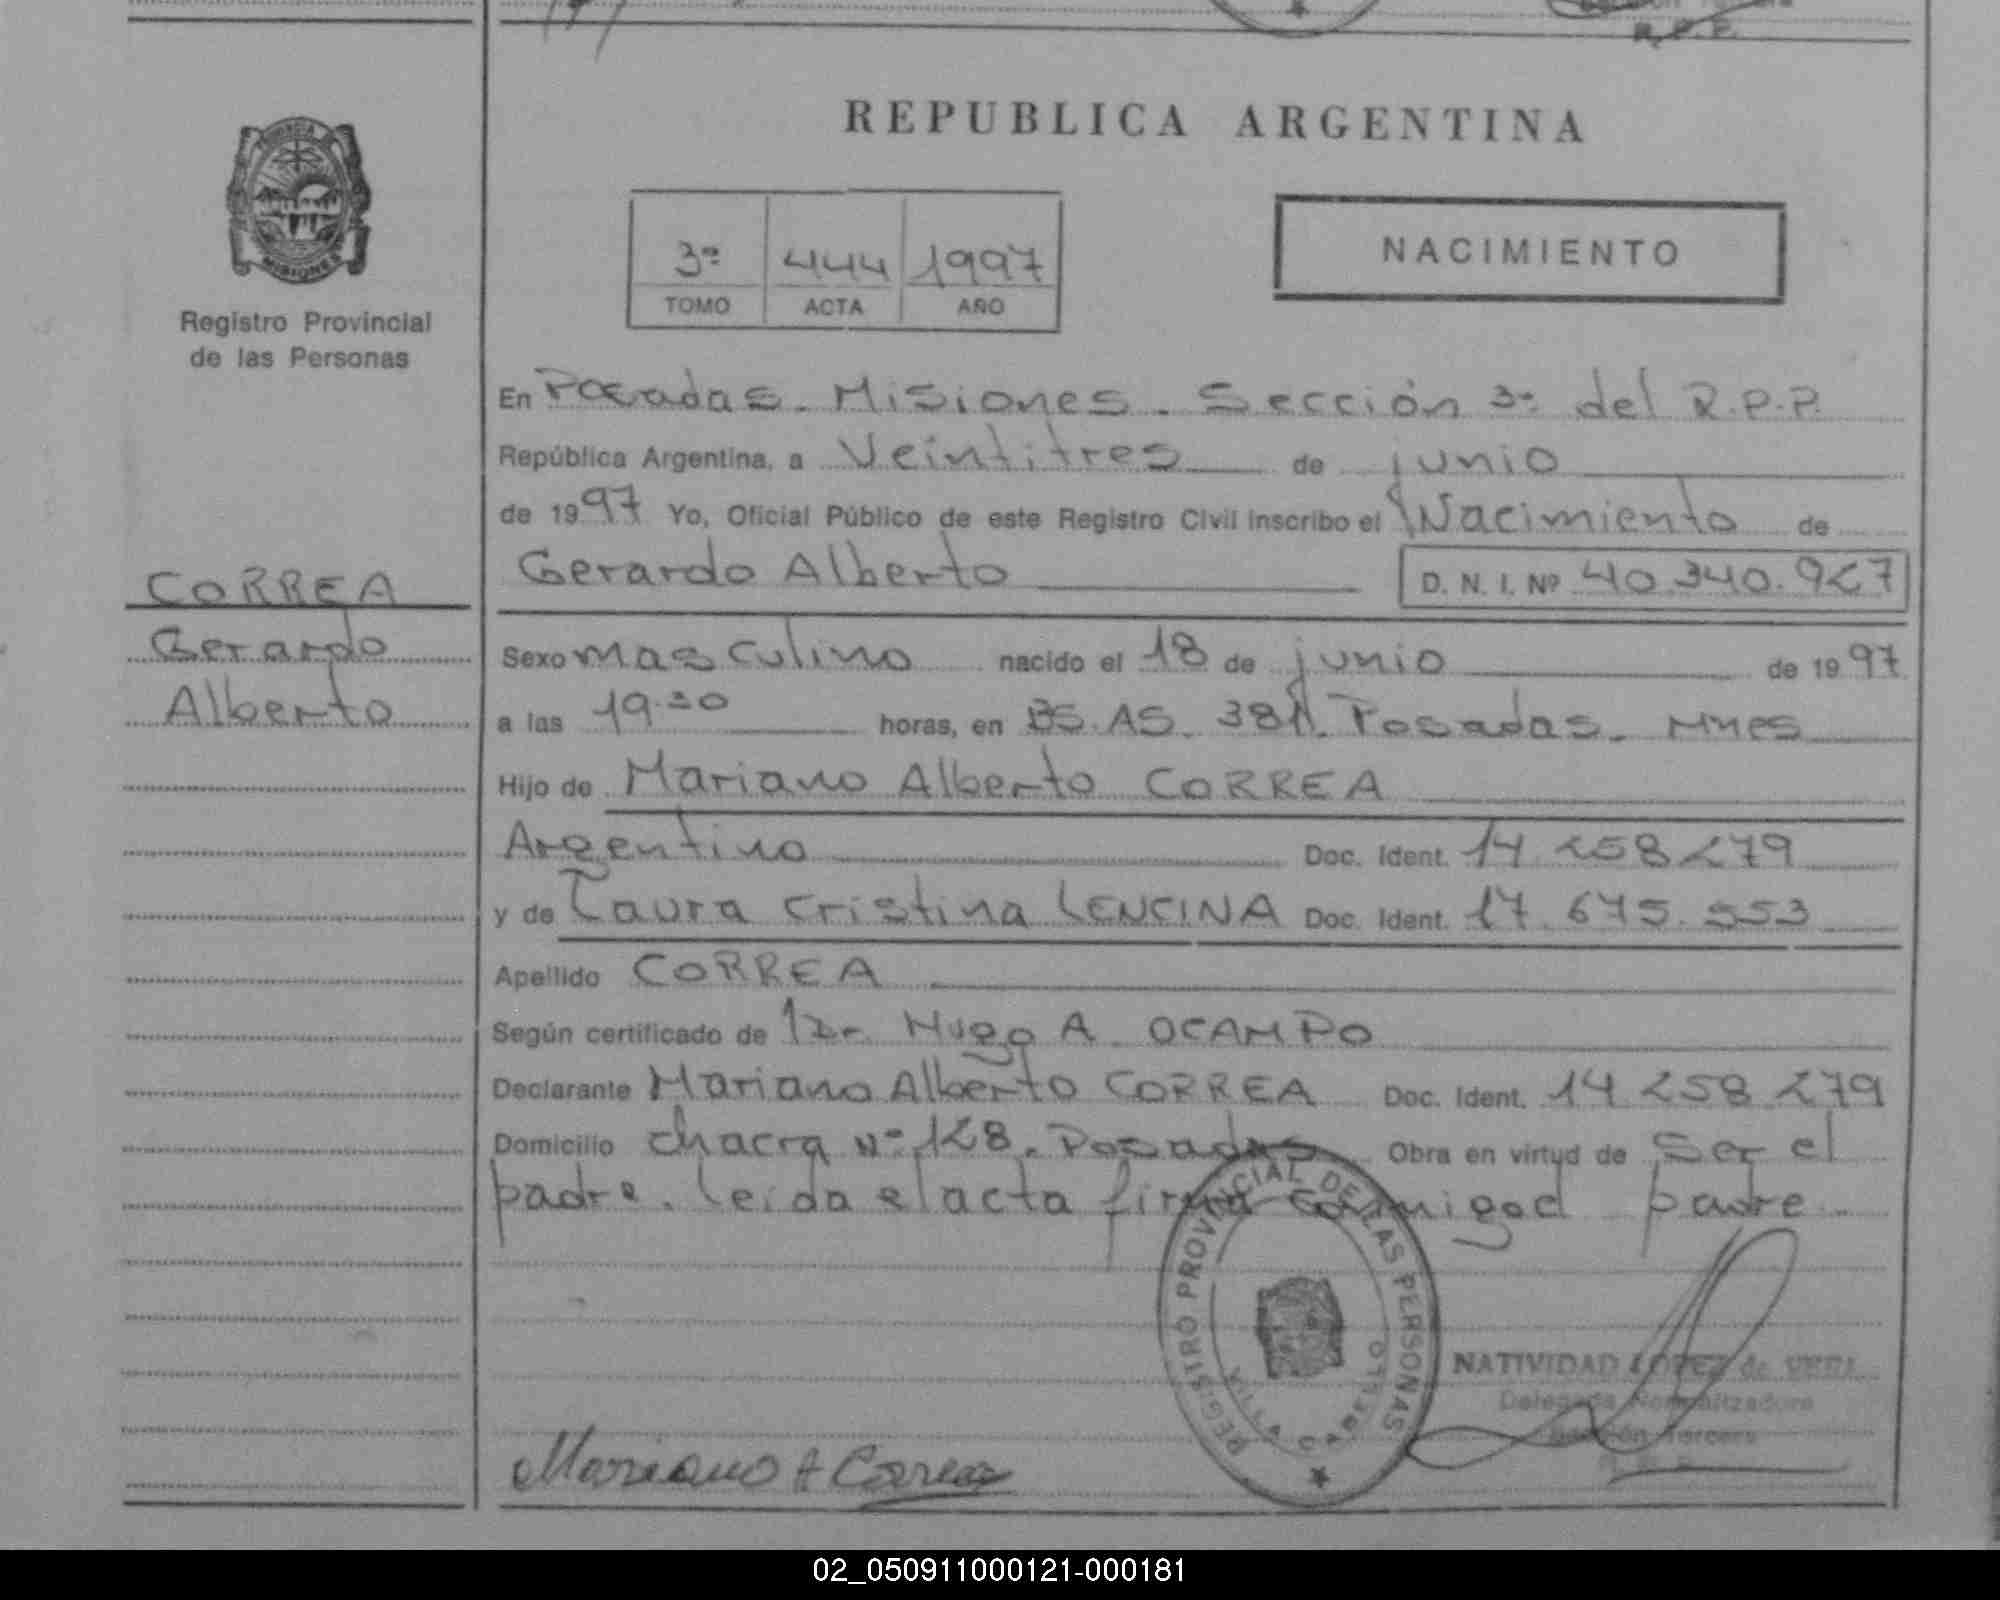 REPUBLICA ARGENTINA
MISIONES
Registro Provincial
de las Personas
3º 444 1997
TOMO ACTA AÑO
NACIMIENTO
En Posadas. Misiones. Sección 3ª del R.P.P.
República Argentina, a Veintitres de junio
de 1997 Yo, Oficial Público de este Registro Civil inscribo el Nacimiento de
Gerardo Alberto D. N. I. Nº 40.340.927
CORREA
Gerardo
Alberto
Sexo masculino nacido el 18 de junio de 1997
a las 19.30 horas, en BS.AS. 381. Posadas. Mnes
Hijo de Mariano Alberto CORREA
Argentino Doc. Ident. 14.258.279
y de Laura Cristina LENCINA Doc. Ident. 17.675.553
Apellido CORREA
Según certificado de Dr. Hugo A. OCAMPO
Declarante Mariano Alberto CORREA Doc. Ident. 14.258.279
Domicilio chacra Nº 128. Posadas Obra en virtud de Ser el
padre. leida el acta firma conmigo el padre
REGISTRO PROVINCIAL DE LAS PERSONAS
VILLA CABELLO
NATIVIDAD LOPEZ de
Delegada Normalizadora
Sección Tercera
Mariano A Correa
02_050911000121-000181